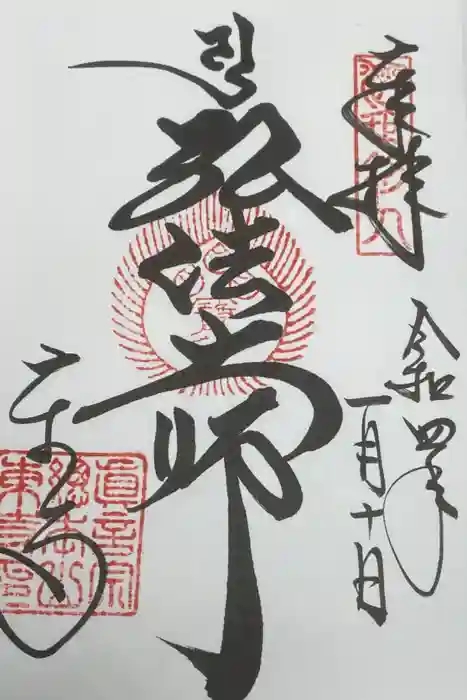 奉拝
令和四年
一月十日
弘法大師
東寺
真言宗
総本山
東寺印